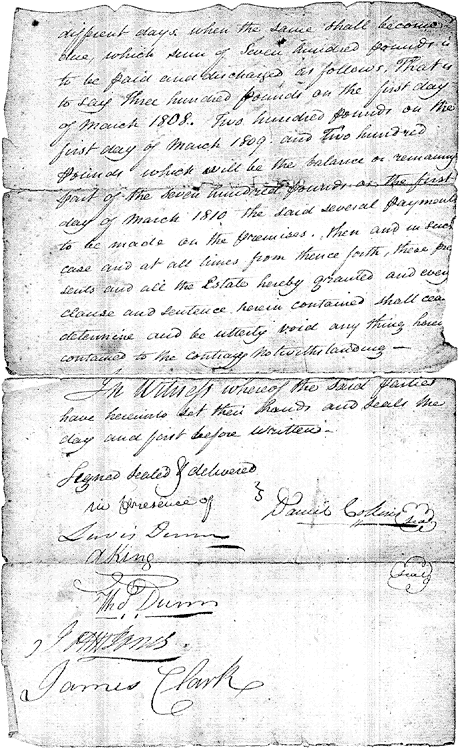 different days when the same shall become
due, which sum of Seven hundred pounds is
to be paid and discharged as follows. That is
to say Three hundred pounds on the first day
of March 1808. Two hundred pounds on the
first day of March 1809. and Two hundred
pounds which will be the balance or remaining
part of the Seven hundred pounds on the first
day of March 1810 the said several payments
to be made on the premises. then and in such
case and at all times from thence forth, these pre
sents and all the Estate hereby granted and every
clause and sentence herein contained shall cease
determine and be utterly void any thing herein
contained to the contrary notwithstanding—
In Witness whereof the said parties
have hereunto set their hands and seals the
day and first before written-
Signed sealed & delivered
in presence of
Daniel Collins Seal
Lewis Dunn
A King
Seal
Tho.s Dunn
Jones.
James Clark